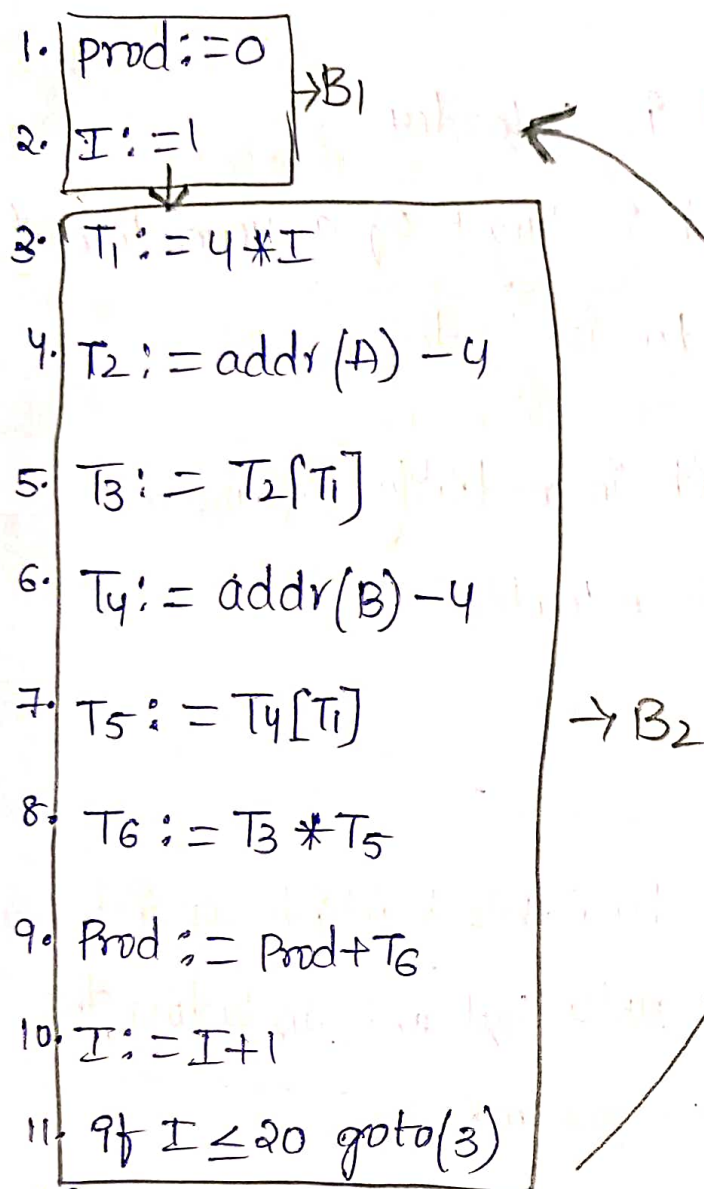 1. prod:=0
→B1
2. I:=1
3. T1:=4*I
4. T2:=addr(A)-4
5. T3:=T2[T1]
6. T4:=addr(B)-4
7. T5:=T4[T1]
→B2
8. T6:=T3*T5
9. Prod:=Prod+T6
10. I:=I+1
11. If I≤20 goto(3)